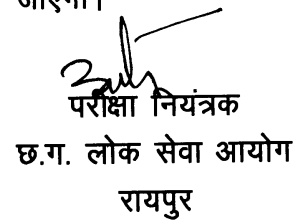 जाएगा।
परीक्षा नियंत्रक
छ.ग. लोक सेवा आयोग
रायपुर